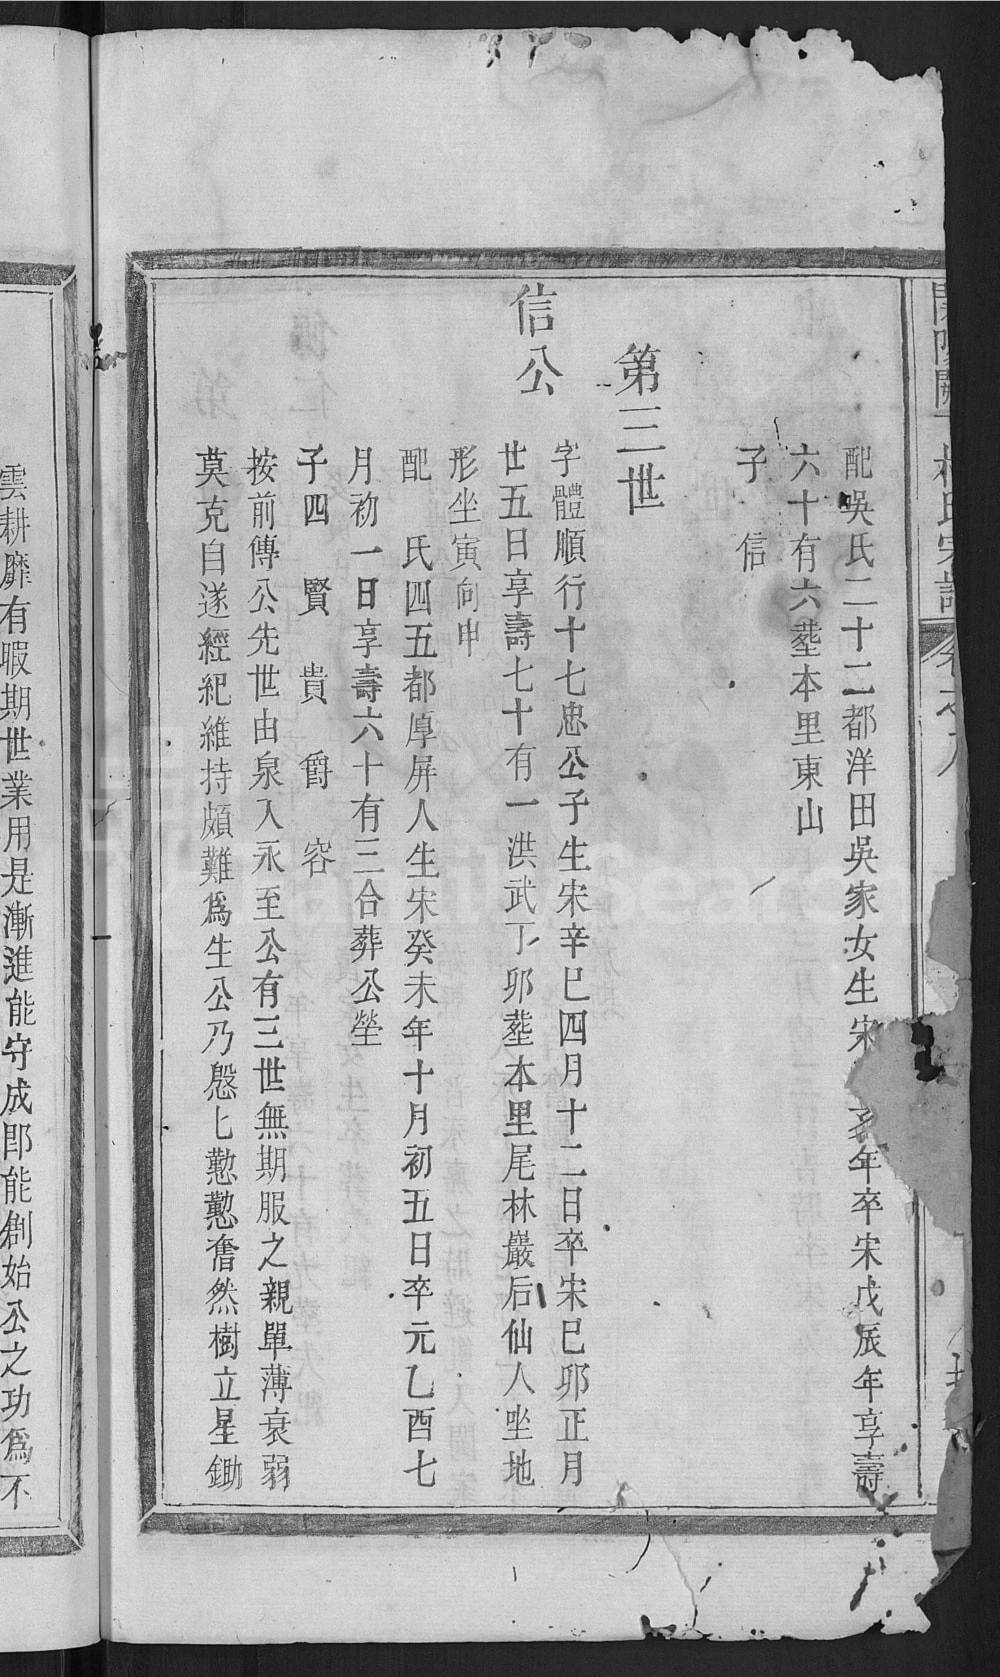 配吳氏二十二都洋田吳家女生宋 亥年卒宋戊辰年享壽
六十有六塟本里東山
子 信
第三世
信公
字體順行十七忠公子生宋辛巳四月十二日卒宋己卯正月
廿五日享壽七十有一洪武丁卯塟本里尾林嚴后仙人坐地
形坐寅向申
配 氏四五都厚屏人生宋癸未年十月初五日卒元乙酉七
月初一日享壽六十有三合葬公塋
子四 賢 貴 爵 容
按前傳公先世由泉入永至公有三世無期服之親單薄衰弱
莫克自遂經紀維持頗難爲生公乃慇匕懃懃奮然樹立星鋤
雲耕靡有暇期世業用是漸進能守成即能創始公之功爲不